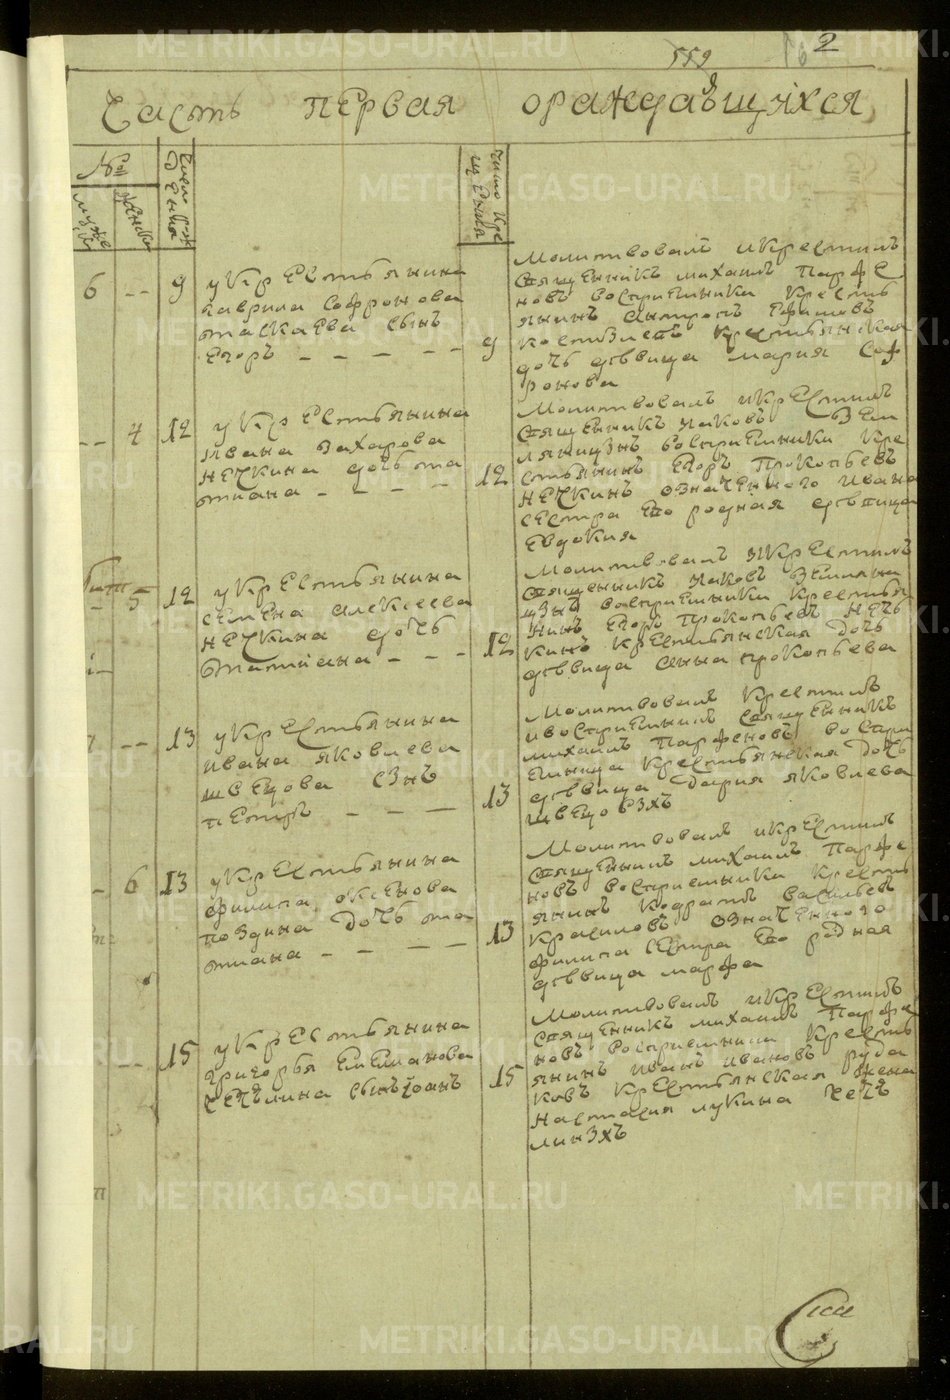 559 2
Часть первая ораждающихся
№
Число рож
дения
Число кре
щения
муже
женска
6 -- 9 у крестьянина
гаврила Софронова
таскаева сынъ
Егоръ
9 Молитвовалъ икрестилъ
Священникъ михаилъ Парфе
новъ восприемники кресть
янинъ Антропъ Ефимовъ
крестьянская
дочь девица мария Соф
ронова
-- 4 12 у крестьянина
ивана Захарова
нечкина дочь та
тиана
12 Молитвовалъ икрестилъ
Священникъ иаковъ Зем
ляницынъ восприемники кре
стьянинъ Егоръ Прокопьевъ
нечкинъ означенного ивана
сестра Его родная девица
Евдокия
5 12 у крестьянина
семена алексеева
нечкина дочь
татиана
12 Молитвовалъ икрестилъ
священникъ иаковъ Земляни
цынъ восприемники крестья
нинъ Егоръ прокопьевъ неч
кинъ крестьянская дочь
девица Анна прокопьева
-- 13 у крестьянина
ивана яковлева
швецова сынъ
петръ
13 Молитвовалъ крестилъ
ивосприемникъ священникъ
михаилъ Парфеновъ воспри
емница крестьянская дочь
девица Дария яковлева
швецовыхъ
6 13 у крестьянина
филипа аксенова
поздина дочь та
тиана
13 Молитвовалъ икрестилъ
священникъ михаилъ Парфе
новъ восприемники кресть
янинъ Кодратъ васильев
Красиловъ означенного
филипа сестра Его родная
девица марфа
-- 15 у крестьянина
григорья Емельянова
сынъ иоанъ
15 Молитвовалъ икрестилъ
Священникъ михаилъ Парфе
новъ восприемники кресть
янинъ иванъ ивановъ руда
ковъ крестьянская жена
настасия лукина
METRIKI.GASO-URAL.RU